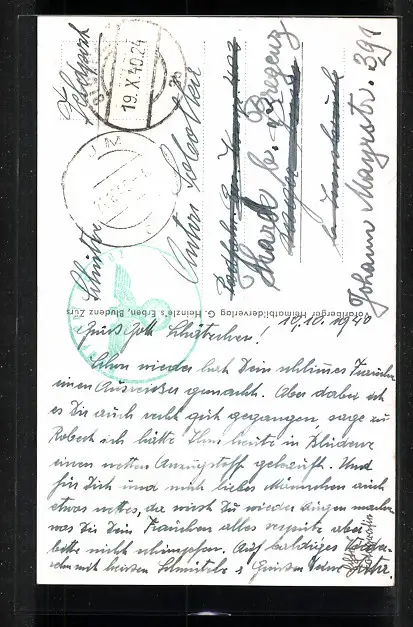 Feldpost
19.X.40.24
Schütze
Anton
Hard b. Bregenz
Johann Mayrstr. 391
Vorarlberger Heimatbilderverlag G. Heinzle's Erben, Bludenz Zürs
10.10.1940
Grüß Gott
Schon wieder hat Dein schlimmes Frauchen
einen Ausreisser gemacht. Aber dabei ist
es Dir auch recht gut gegangen, sage zu
Robert ich hätte Ihm heute in Bludenz
einen netten Anzugstoff gekauft. Und
für Dich und mich liebes Männchen auch
etwas nettes, da wirst Du wieder Augen machen
was Dir Dein Frauchen alles aber
bitte nicht schimpfen. Auf baldiges Wieder-
sehn mit heissen Schmützle & Grüssen Deine